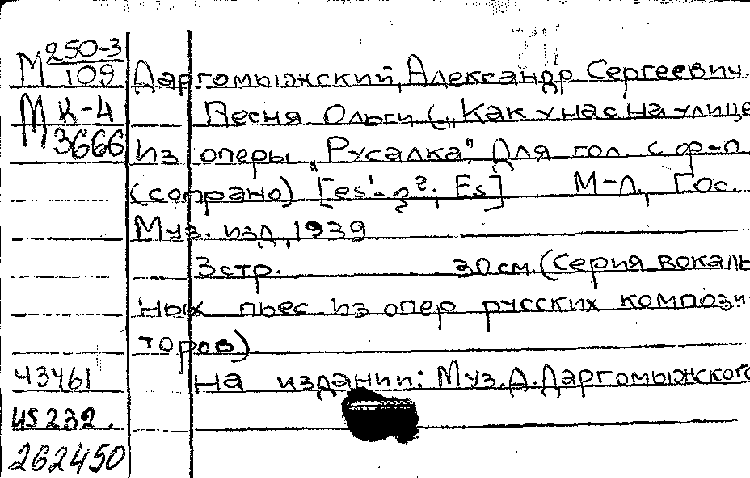 М 250-3/109 Даргомыжский, Александр Сергеевич.
М К-4 Песня Ольги („Как у нас на улице
3666 Из оперы „Русалка“. Для гол. с ф-п.
(сопрано) [es¹-g²; Es] М-Л, Гос.
Муз. изд, 1939
3 стр. 30 см. (Серия вокаль
ных пьес из опер русских компози-
торов)
43461 На издании: Муз. А. Даргомыжского
И5232.
262450